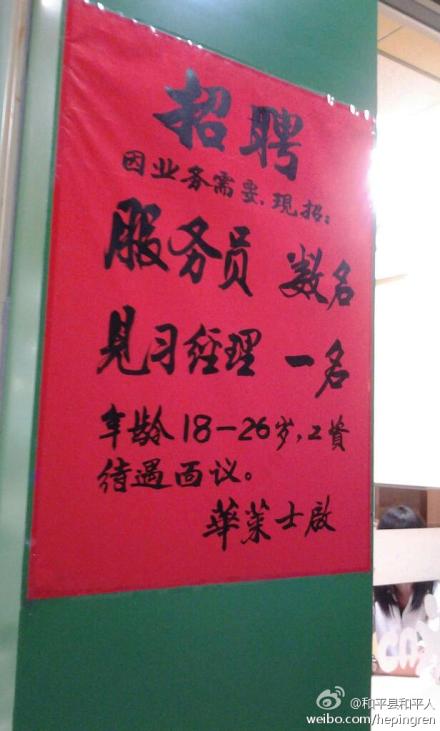 招聘
因业务需要,现招:
服务员 数名
见习经理 一名
年龄18-26岁,工資
待遇面议。
華莱士啟
@和平县和平人
weibo.com/hepingren